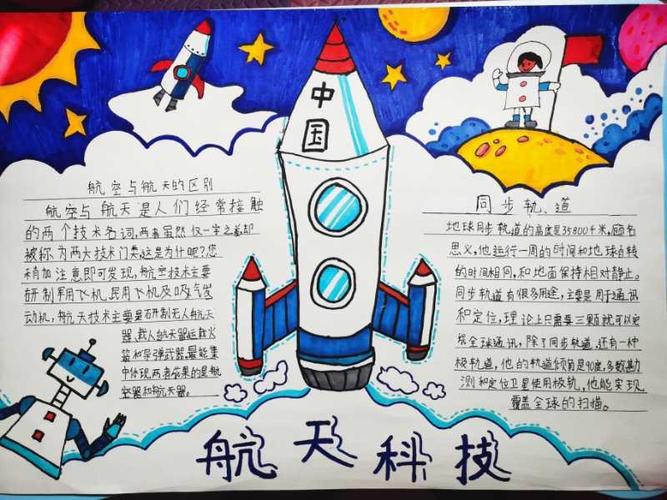 中国
航空与航天的区别
航空与航天是人们经常接触
的两个技术名词,两者虽然仅一字之差却
被称为两大技术门类,这是为什呢?您
稍加注意即可发现,航空技术主要
研制军用飞机、民用飞机及吸气发
动机,航天技术主要是研制无人航天
器、载人航天器运载火
箭和导弹武器,最能集
中体现两者成果的是航
空器和航天器。
同步轨道
地球同步轨道的高度是35800千米,顾名
思义,他运行一周的时间和地球自转
的时间相同,和地面保持相对静止。
同步轨道有很多用途,主要是用于通讯
和定位,理论上只需要三颗就可以实
现全球通讯,除了同步轨道,还有一种
极轨道,他的轨道倾角是90度,多数勘
测和定位卫星使用极轨,他能实现
覆盖全球的扫描。
航天科技